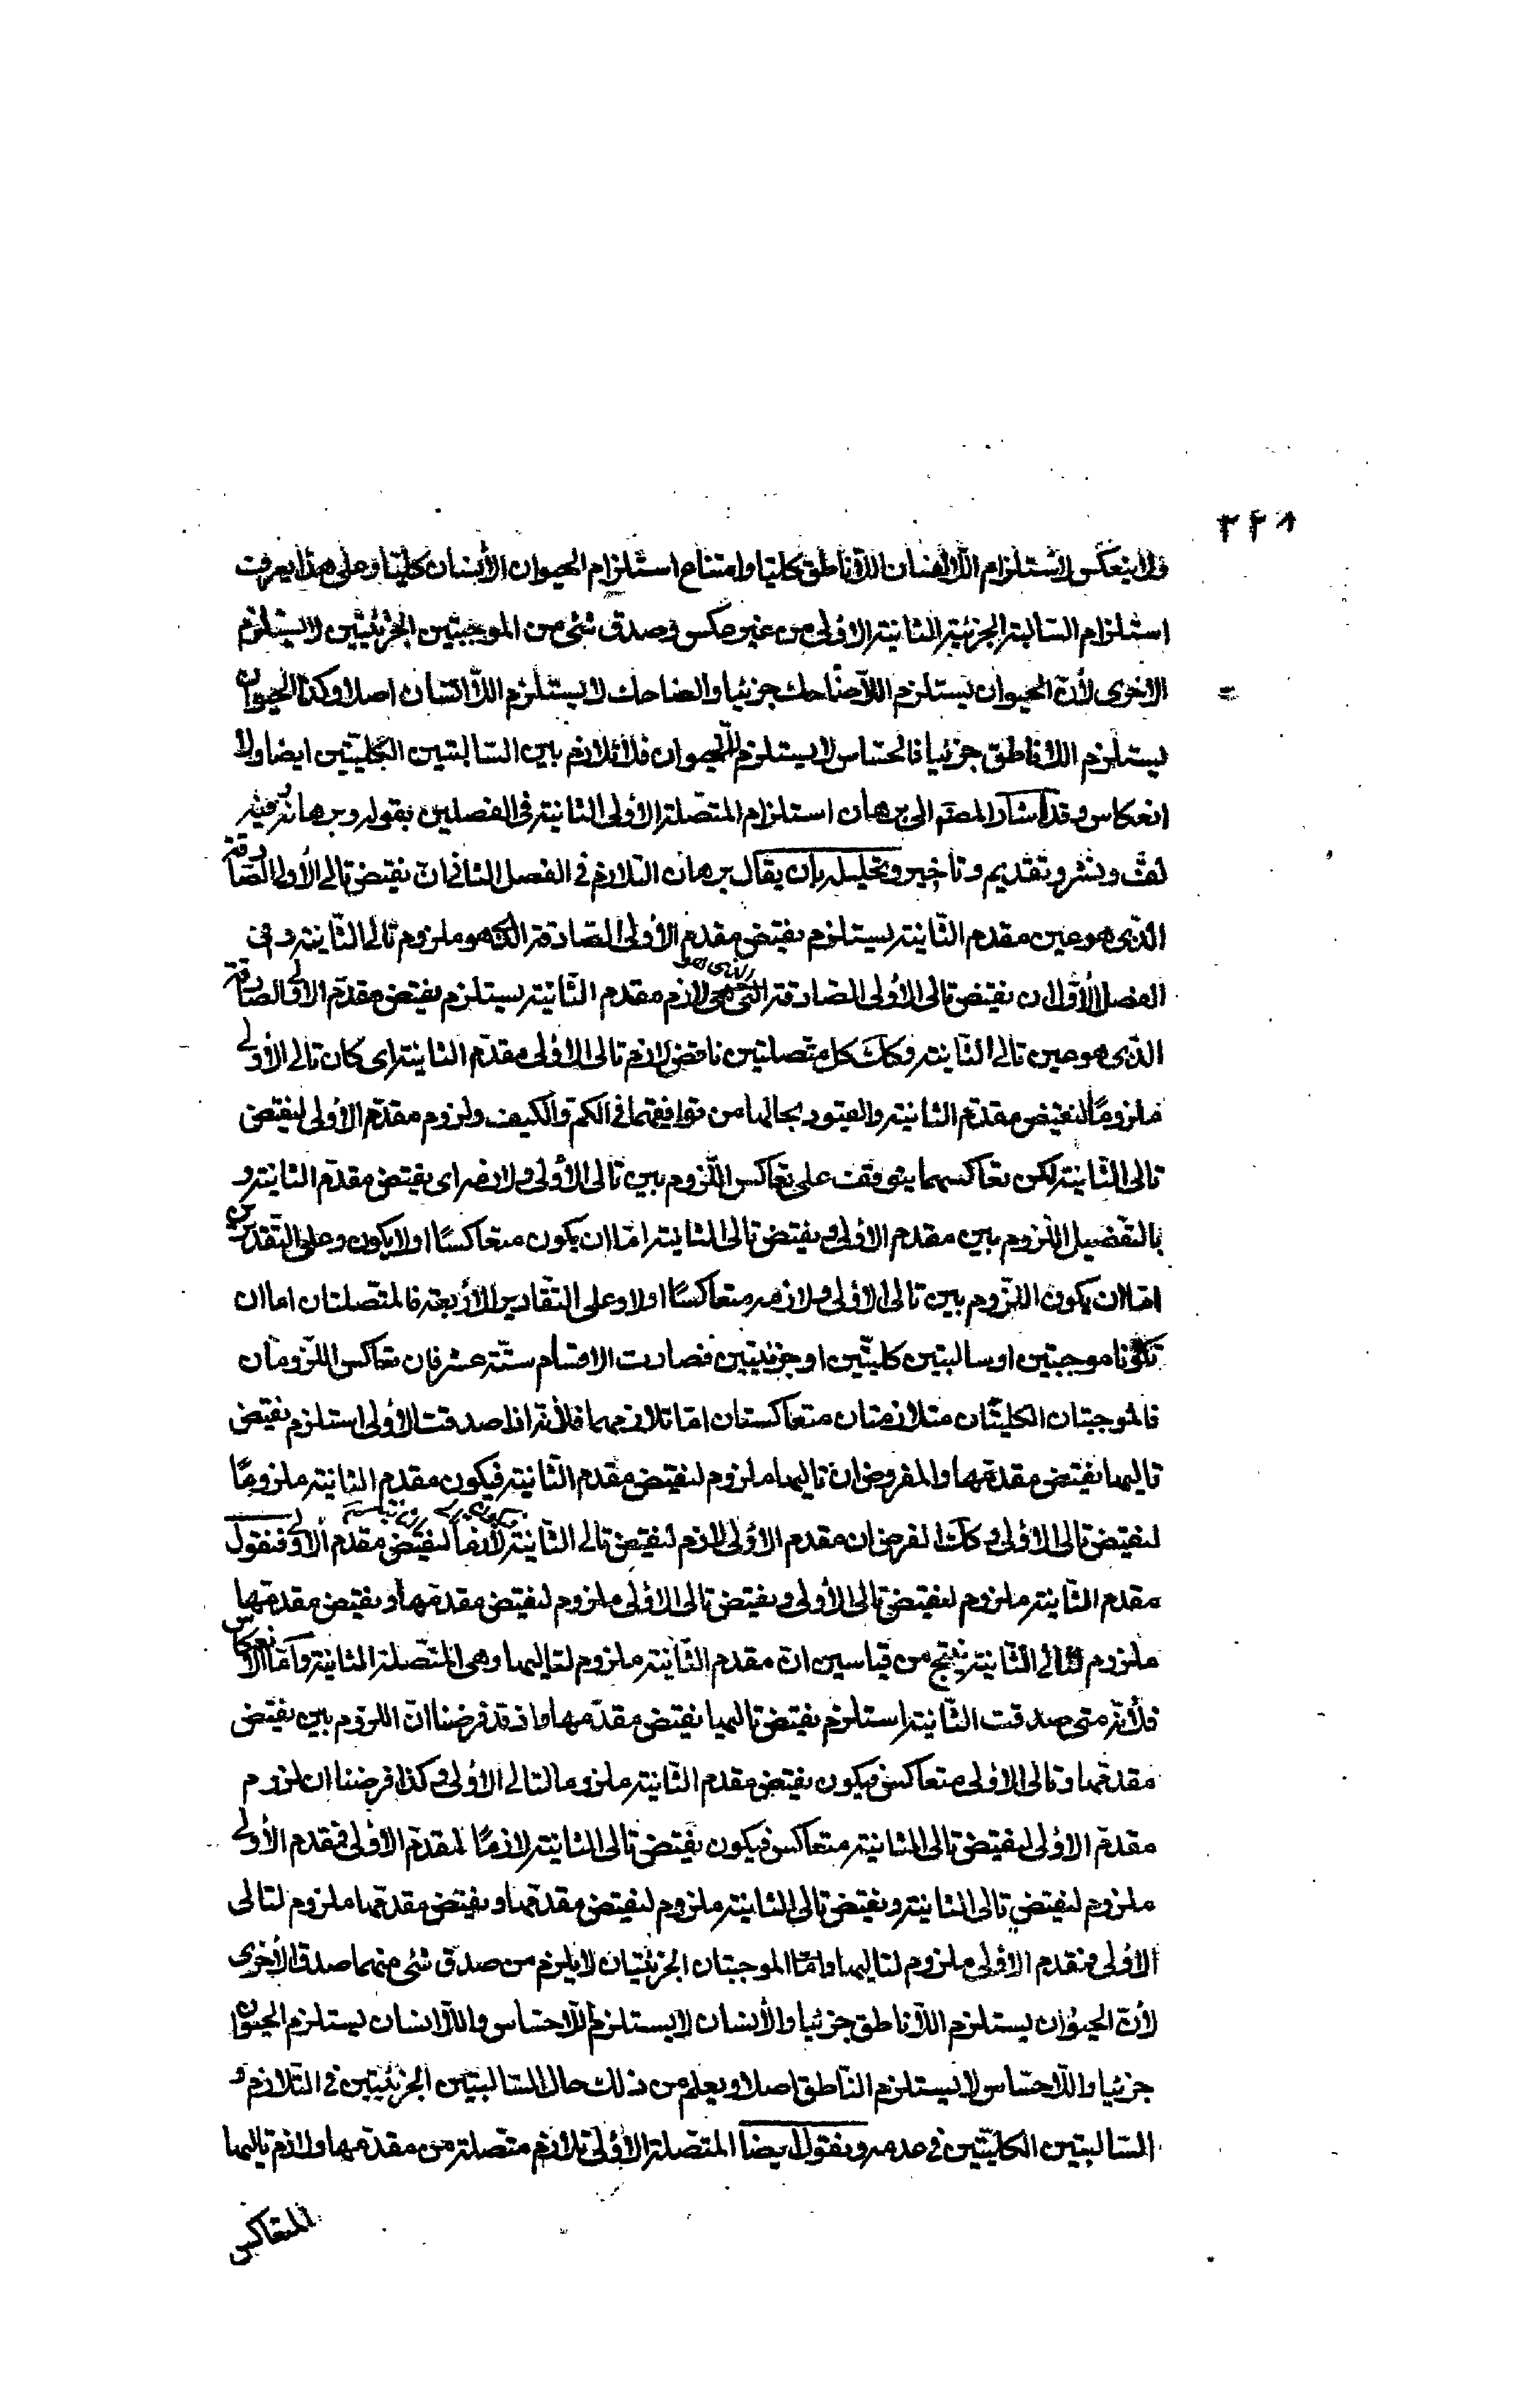 ٢٢٨
ولا ينعكس لاستلزام اللاانسان اللاناطق كليا وامتناع استلزام الحيوان الأنسان كليا وعلى هذا يعرف
استلزام السالبة الجزئية الثانية الاولى من غير عكس وصدق شئ من الموجبتين الجزئيتين لا يستلزم
الاخرى لأن الحيوان يستلزم اللاضاحك جزئيا والضاحك لا يستلزم اللاانسان اصلا وكذا الحيوان
يستلزم اللاناطق جزئيا فالحساس لا يستلزم اللاحيوان فلا تلازم بين السالبتين الكليتين ايضا ولا
انعكاس وقد اشار المصم الى برهان استلزام المتصلة الأولى الثانية في الفصلين بقوله وبرهانه وفيه
لف ونشر وتقديم وتأخير وتحليله بان يقال برهان التلازم في الفصل الثاني ان نقيض تالى الأولى الصادقة
الذى هو عين مقدم الثانية يستلزم نقيض مقدم الأولى الصادقة الذى هو ملزوم تالى الثانية وفى
الفصل الأول ان نقيض تالى الأولى الصادقة الذى هو لازم مقدم الثانية يستلزم نقيض مقدم الاولى الصادقة
الذى هو عين تالى الثانية وكك كل متصلتين ناقض لازم تالى الاولى مقدم الثانية اى كان تالى الأولى
ملزومًا لنقيض مقدم الثانية والقيود بحالها من توافقهما فى الكم والكيف ولزوم مقدم الأولى لنقيض
تالى الثانية لكن تعاكسهما يتوقف على تعاكس اللزوم بين تالى الأولى ولازمه اى نقيض مقدم الثانية و
بالتفصيل اللزوم بين مقدم الاولى ونقيض تالى الثانية اما ان يكون متعاكسًا اولا يكون وعلى التقديرين
اما ان يكون اللزوم بين تالى الأولى ولازمه متعاكسًا اولا وعلى التقادير الأربعة فالمتصلتان اما ان
تكونا موجبتين او سالبتين كليتين او جزئيتين فصارت الاقسام ستة عشر فان تعاكس اللزومان
فالموجبتان الكليتان متلازمتان متعاكستان اما تلازمهما فلأنه اذا صدقت الأولى استلزم نقيض
تاليها نقيض مقدمها والمفروض ان تاليها ملزوم لنقيض مقدم الثانية فيكون مقدم الثانية ملزومًا
لنقيض تالى الأولى وكك الفرض ان مقدم الاولى لازم لنقيض تالى الثانية لنقيض مقدم الاولى فنقول
مقدم الثانية ملزوم لنقيض تالى الأولى ونقيض تالى الاولى ملزوم لنقيض مقدمها ونقيض مقدمها
ملزوم لتالى الثانية ينتج من قياسين ان مقدم الثانية ملزوم لتاليها وهى المتصلة الثانية واما الانعكاس
فلأنه متى صدقت الثانية استلزم نقيض تاليها نقيض مقدمها واذ قد فرضنا ان اللزوم بين نقيض
مقدمها وتالى الاولى متعاكس فيكون نقيض مقدم الثانية ملزوما لتالى الاولى وكذا فرضنا ان لزوم
مقدم الاولى لنقيض تالى الثانية متعاكس فيكون نقيض تالى الثانية لازمًا لمقدم الأولى فمقدم الأولى
ملزوم لنقيض تالى الثانية ونقيض تالى الثانية ملزوم لنقيض مقدمها ونقيض مقدمها ملزوم لتالى
الأولى فمقدم الاولى ملزوم لتاليها واما الموجبتان الجزئيتان لا يلزم من صدق شئ منهما صدق الأخرى
لأن الحيوان يستلزم اللاناطق جزئيا والأنسان لا يستلزم اللاحساس واللاانسان يستلزم الحيوان
جزئيا واللاحساس لا يستلزم الناطق اصلا ويعلم من ذلك حال السالبتين الجزئيتين فى التلازم و
السالبتين الكليتين فى عدمه ونقول ايضا المتصلة الأولى تلازم متصلة من مقدمها ولازم تاليها
المتعاكس